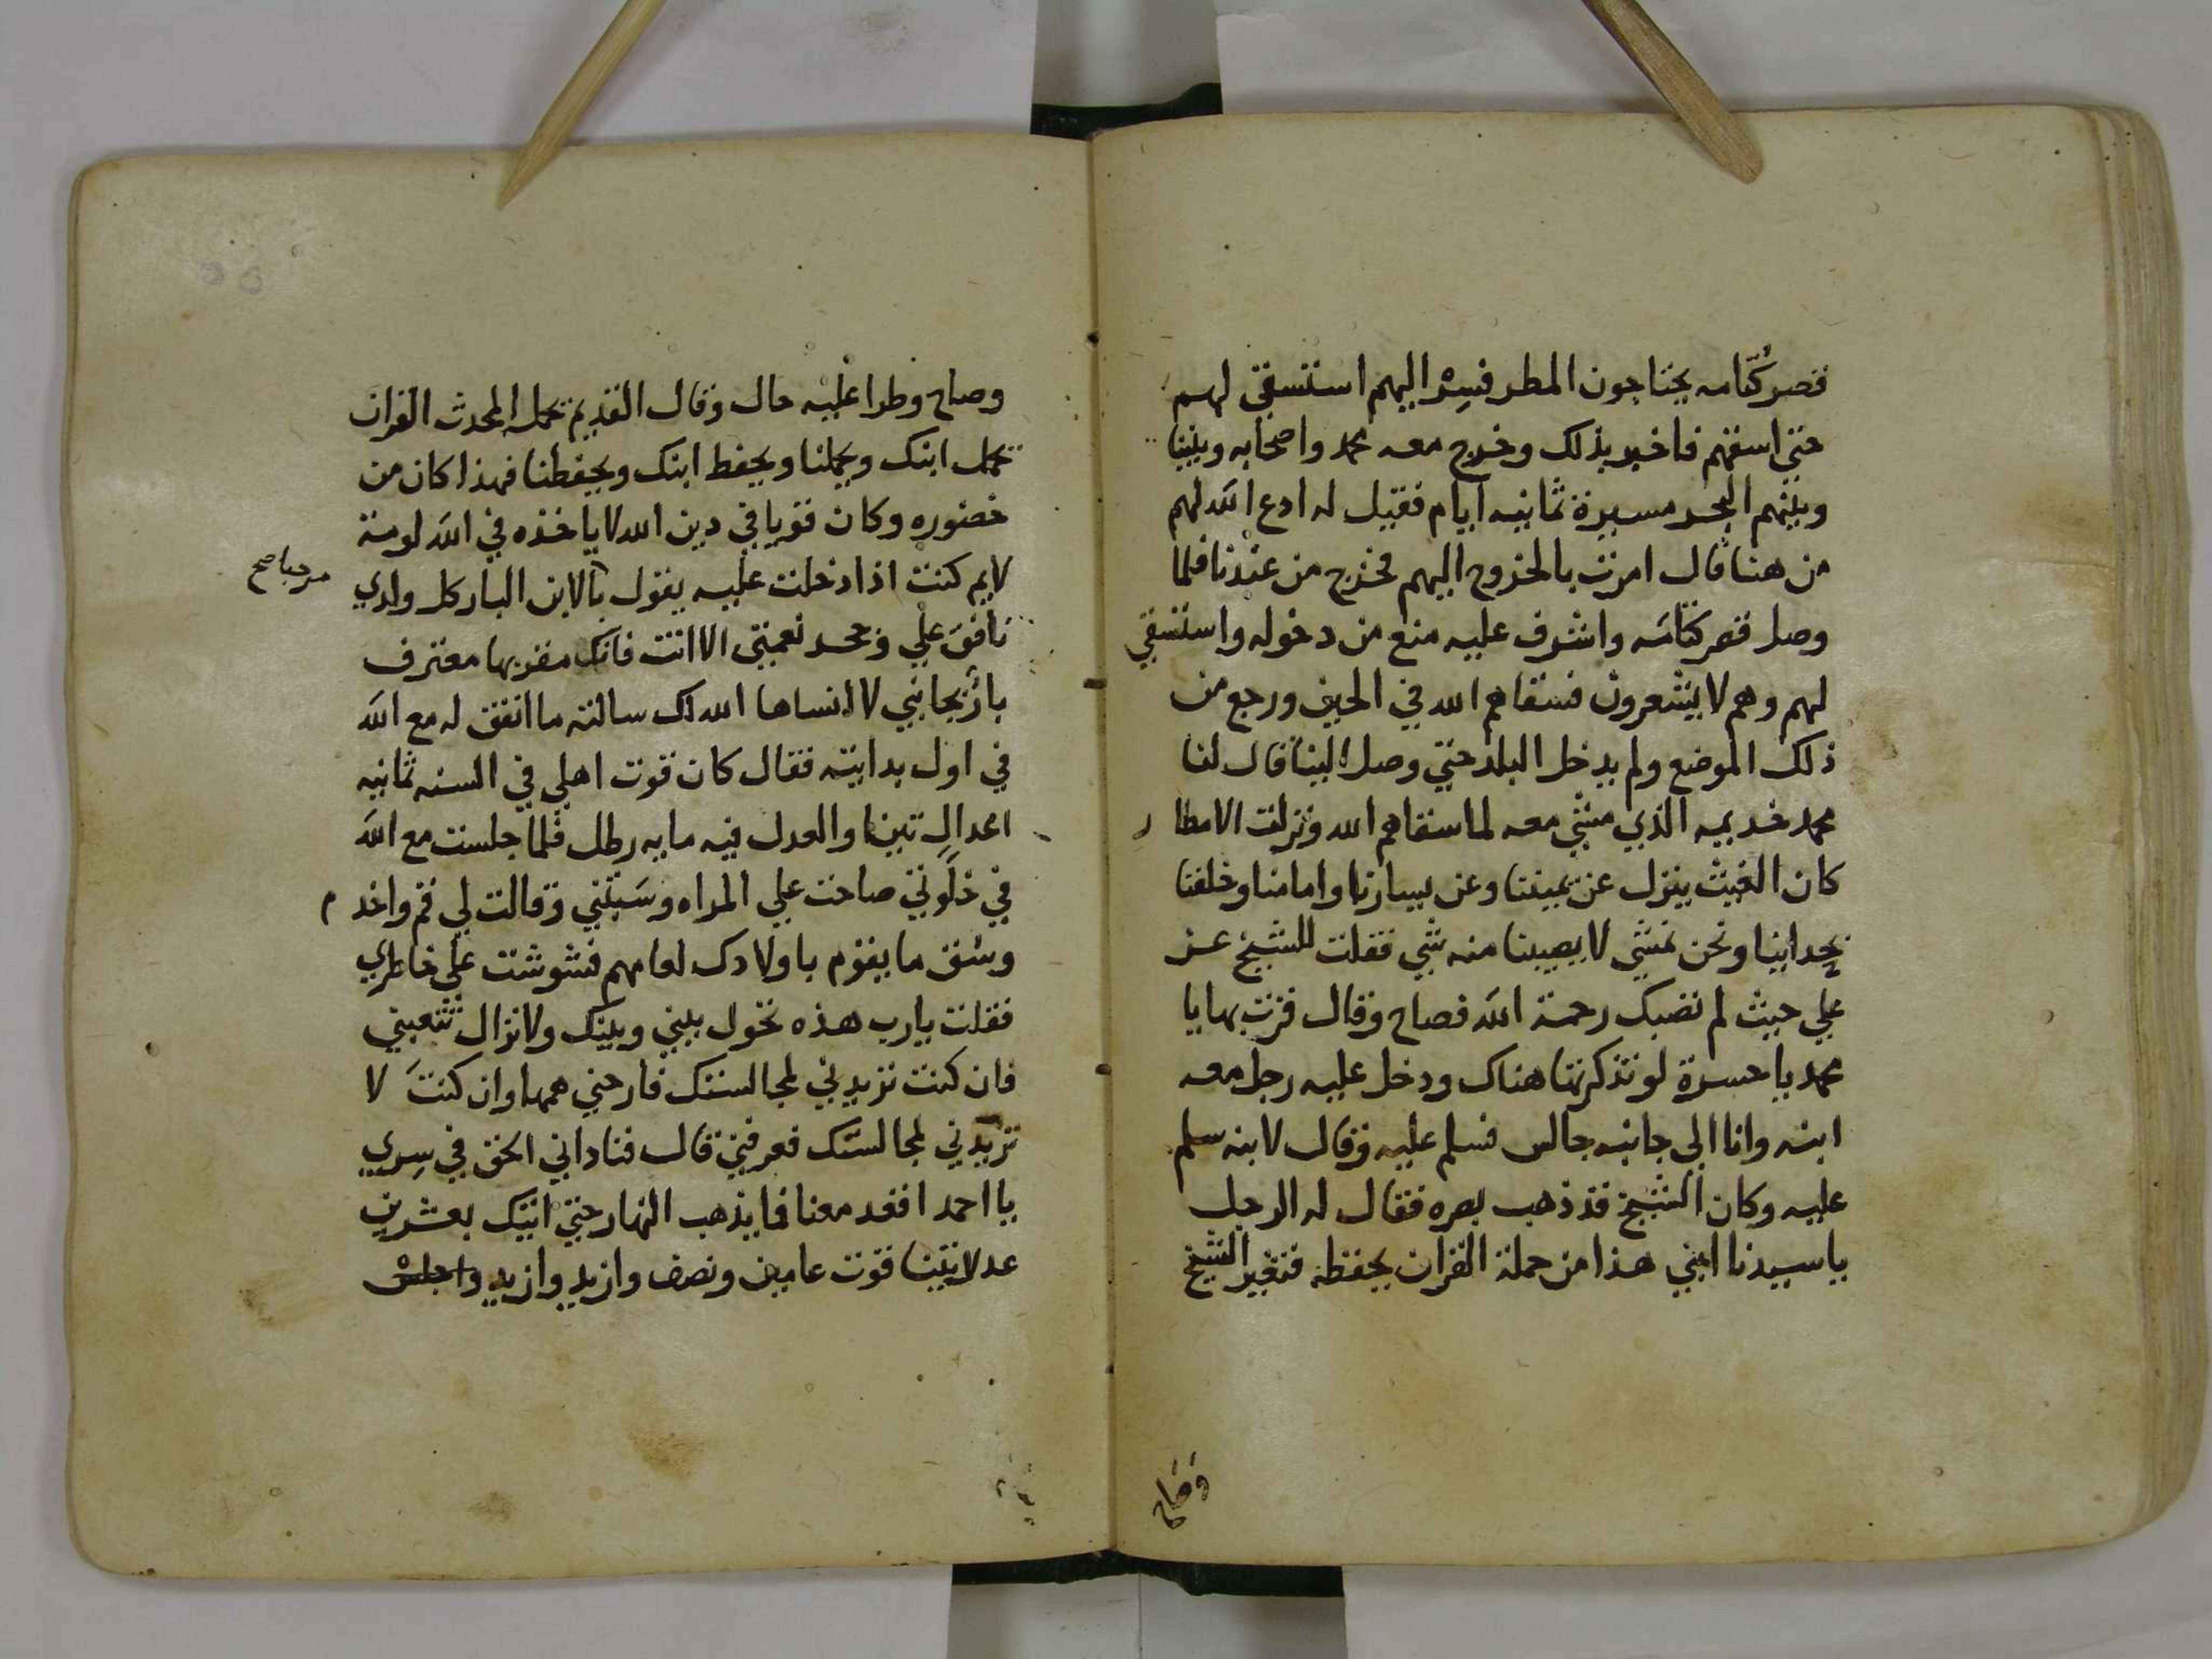 قصر كُتّامه يحتاجون المطر فسِرْ اليهم استسقي لهم
حتي اسقهم فاخبر بذلك وخرج معه محمد واصحابه وبيننا
وبينهم البحر مسيرة ثمانيه ايام فقيل له ادع الله لهم
من هنا قال امرت بالخروج اليهم فخرج من عندنا فلما
وصل قصر كتامَه واشرف عليه منع من دخوله واستسقي
لهم وهم لا يشعرون فسقاهم الله في الحين ورجع من
ذلك الموضع ولم يدخل البلد حتي وصل الينا قال لنا
محمد خديمه الذي مشي معه لما سقاهم الله ونزلت الامطار
كان الغيث ينزل عن يميننا وعن يسارنا وامامنا وخلفنا
بحداينا ونحن نمشي لا يصيبنا منه شي فقلت للشيخ عز
علي حيث لم تصبك رحمة الله فصاح وقال فزت بها يا
محمد يا حسرة لو تذكرتها هناك ودخل عليه رجل معه
ابنه وانا الي جانبه جالس فسلم عليه وقال لابنه سلم
عليه وكان الشيخ قد ذهب بصره فقال له الرجل
يا سيدنا ابني هذا من حملة القران يحفظه فتغير الشيخ
وصاح
وصاح وطرا عليه حال وقال القديم يحمل المحدث القران
يحمل ابنك ويحملنا ويحفظ ابنك ويحفظنا فهذا كان من
حضوره وكان قويا في دين الله لا ياخذه في الله لومة
لايم كنت اذا دخلت عليه يقول بالابن البار كل ولدي
مرحبا صح
نافقَ علي وجحد نعمتي الا انت فانك مقر بها معترف
بها لا انساها الله لك سالته ما اتفق له مع الله
في اول بدايته فقال كان قوت اهلي في السنه ثمانيه
اعدالِ تينا والعدل فيه مايه رطل فلما جلست مع الله
في خلَوتي صاحت علي المراه وسَبَّتني وقالت لي قم واخدم
وسق ما يقوم باولادك لعامهم فشوشت علي خاطري
فقلت يا رب هذه تحول بيني وبينك ولا تزال تتعبني
فان كنت تريدني لمجالستك فارحني همها وان كنتَ لا
تريدني لمجالستك فعرفني قال فناداني الحق في سِري
يا احمد اقعد معنا فما يذهب النهار حتي اتيك بعشرين
عدلا تينا قوت عامين ونصف وازيد وازيد واجلسْ